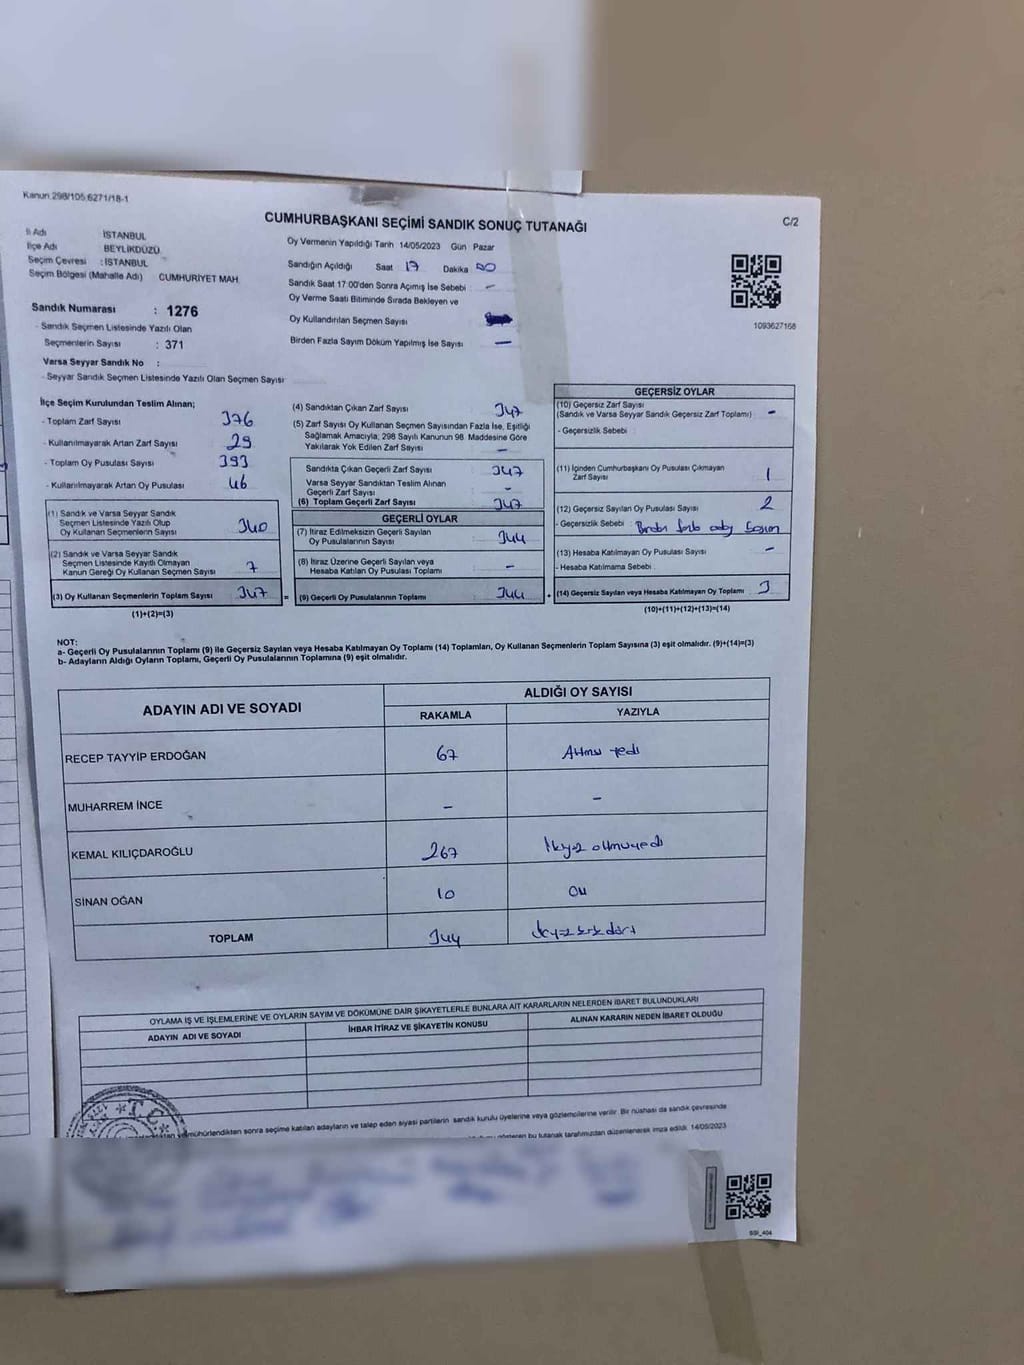 Kanun 298/105,6271/18-1
CUMHURBAŞKANI SEÇİMİ SANDIK SONUÇ TUTANAĞI
C/2
İl Adı İSTANBUL
İlçe Adı BEYLİKDÜZÜ
Seçim Çevresi : İSTANBUL
Seçim Bölgesi (Mahalle Adı) CUMHURİYET MAH.
Oy Vermenin Yapıldığı Tarih 14/05/2023 Gün Pazar
Sandığın Açıldığı Saat 17 Dakika 00
Sandık Saat 17:00'den Sonra Açımış İse Sebebi : -
Oy Verme Saati Bitiminde Sırada Bekleyen ve
Oy Kullandırılan Seçmen Sayısı
Birden Fazla Sayım Döküm Yapılmış İse Sayısı -
1093627168
Sandık Numarası : 1276
- Sandık Seçmen Listesinde Yazılı Olan
Seçmenlerin Sayısı : 371
Varsa Seyyar Sandık No :
- Seyyar Sandık Seçmen Listesinde Yazılı Olan Seçmen Sayısı
İlçe Seçim Kurulundan Teslim Alınan;
- Toplam Zarf Sayısı 376
- Kullanılmayarak Artan Zarf Sayısı 29
- Toplam Oy Pusulası Sayısı 393
- Kullanılmayarak Artan Oy Pusulası 46
(1) Sandık ve Varsa Seyyar Sandık
Seçmen Listesinde Yazılı Olup
Oy Kullanan Seçmenlerin Sayısı 340
(2) Sandık ve Varsa Seyyar Sandık
Seçmen Listesinde Kayıtlı Olmayan
Kanun Gereği Oy Kullanan Seçmen Sayısı 7
(3) Oy Kullanan Seçmenlerin Toplam Sayısı 347 =
(1)+(2)=(3)
(4) Sandıktan Çıkan Zarf Sayısı 347
(5) Zarf Sayısı Oy Kullanan Seçmen Sayısından Fazla İse, Eşitliği
Sağlamak Amacıyla; 298 Sayılı Kanunun 98. Maddesine Göre
Yakılarak Yok Edilen Zarf Sayısı -
Sandıkta Çıkan Geçerli Zarf Sayısı 347
Varsa Seyyar Sandıktan Teslim Alınan
Geçerli Zarf Sayısı -
(6) Toplam Geçerli Zarf Sayısı 347
GEÇERLİ OYLAR
(7) İtiraz Edilmeksizin Geçerli Sayılan
Oy Pusulalarının Sayısı 344
(8) İtiraz Üzerine Geçerli Sayılan veya
Hesaba Katılan Oy Pusulası Toplamı -
(9) Geçerli Oy Pusulalarının Toplamı 344 +
GEÇERSİZ OYLAR
(10) Geçersiz Zarf Sayısı
(Sandık ve Varsa Seyyar Sandık Geçersiz Zarf Toplamı) -
- Geçersizlik Sebebi
(11) İçinden Cumhurbaşkanı Oy Pusulası Çıkmayan
Zarf Sayısı 1
(12) Geçersiz Sayılan Oy Pusulası Sayısı 2
- Geçersizlik Sebebi
(13) Hesaba Katılmayan Oy Pusulası Sayısı -
- Hesaba Katılmama Sebebi
(14) Geçersiz Sayılan veya Hesaba Katılmayan Oy Toplamı 3
(10)+(11)+(12)+(13)=(14)
NOT:
a- Geçerli Oy Pusulalarının Toplamı (9) ile Geçersiz Sayılan veya Hesaba Katılmayan Oy Toplamı (14) Toplamları, Oy Kullanan Seçmenlerin Toplam Sayısına (3) eşit olmalıdır. (9)+(14)=(3)
b- Adayların Aldığı Oyların Toplamı, Geçerli Oy Pusulalarının Toplamına (9) eşit olmalıdır.
ADAYIN ADI VE SOYADI
ALDIĞI OY SAYISI
RAKAMLA YAZIYLA
RECEP TAYYİP ERDOĞAN 67 Altmış yedi
MUHARREM İNCE - -
KEMAL KILIÇDAROĞLU 267 İkiyüz altmışyedi
SİNAN OĞAN 10 On
TOPLAM 344
OYLAMA İŞ VE İŞLEMLERİNE VE OYLARIN SAYIM VE DÖKÜMÜNE DAİR ŞİKAYETLERLE BUNLARA AİT KARARLARIN NELERDEN İBARET BULUNDUKLARI
ADAYIN ADI VE SOYADI İHBAR İTİRAZ VE ŞİKAYETİN KONUSU ALINAN KARARIN NEDEN İBARET OLDUĞU
T.C.
mühürlendikten sonra seçime katılan adayların ve talep eden siyasi partilerin sandık kurulu üyelerine veya gözlemcilerine verilir. Bir nüshası da sandık çevresinde
gösteren bu tutanak tarafımızdan düzenlenerek imza edildi. 14/05/2023
SSI_404